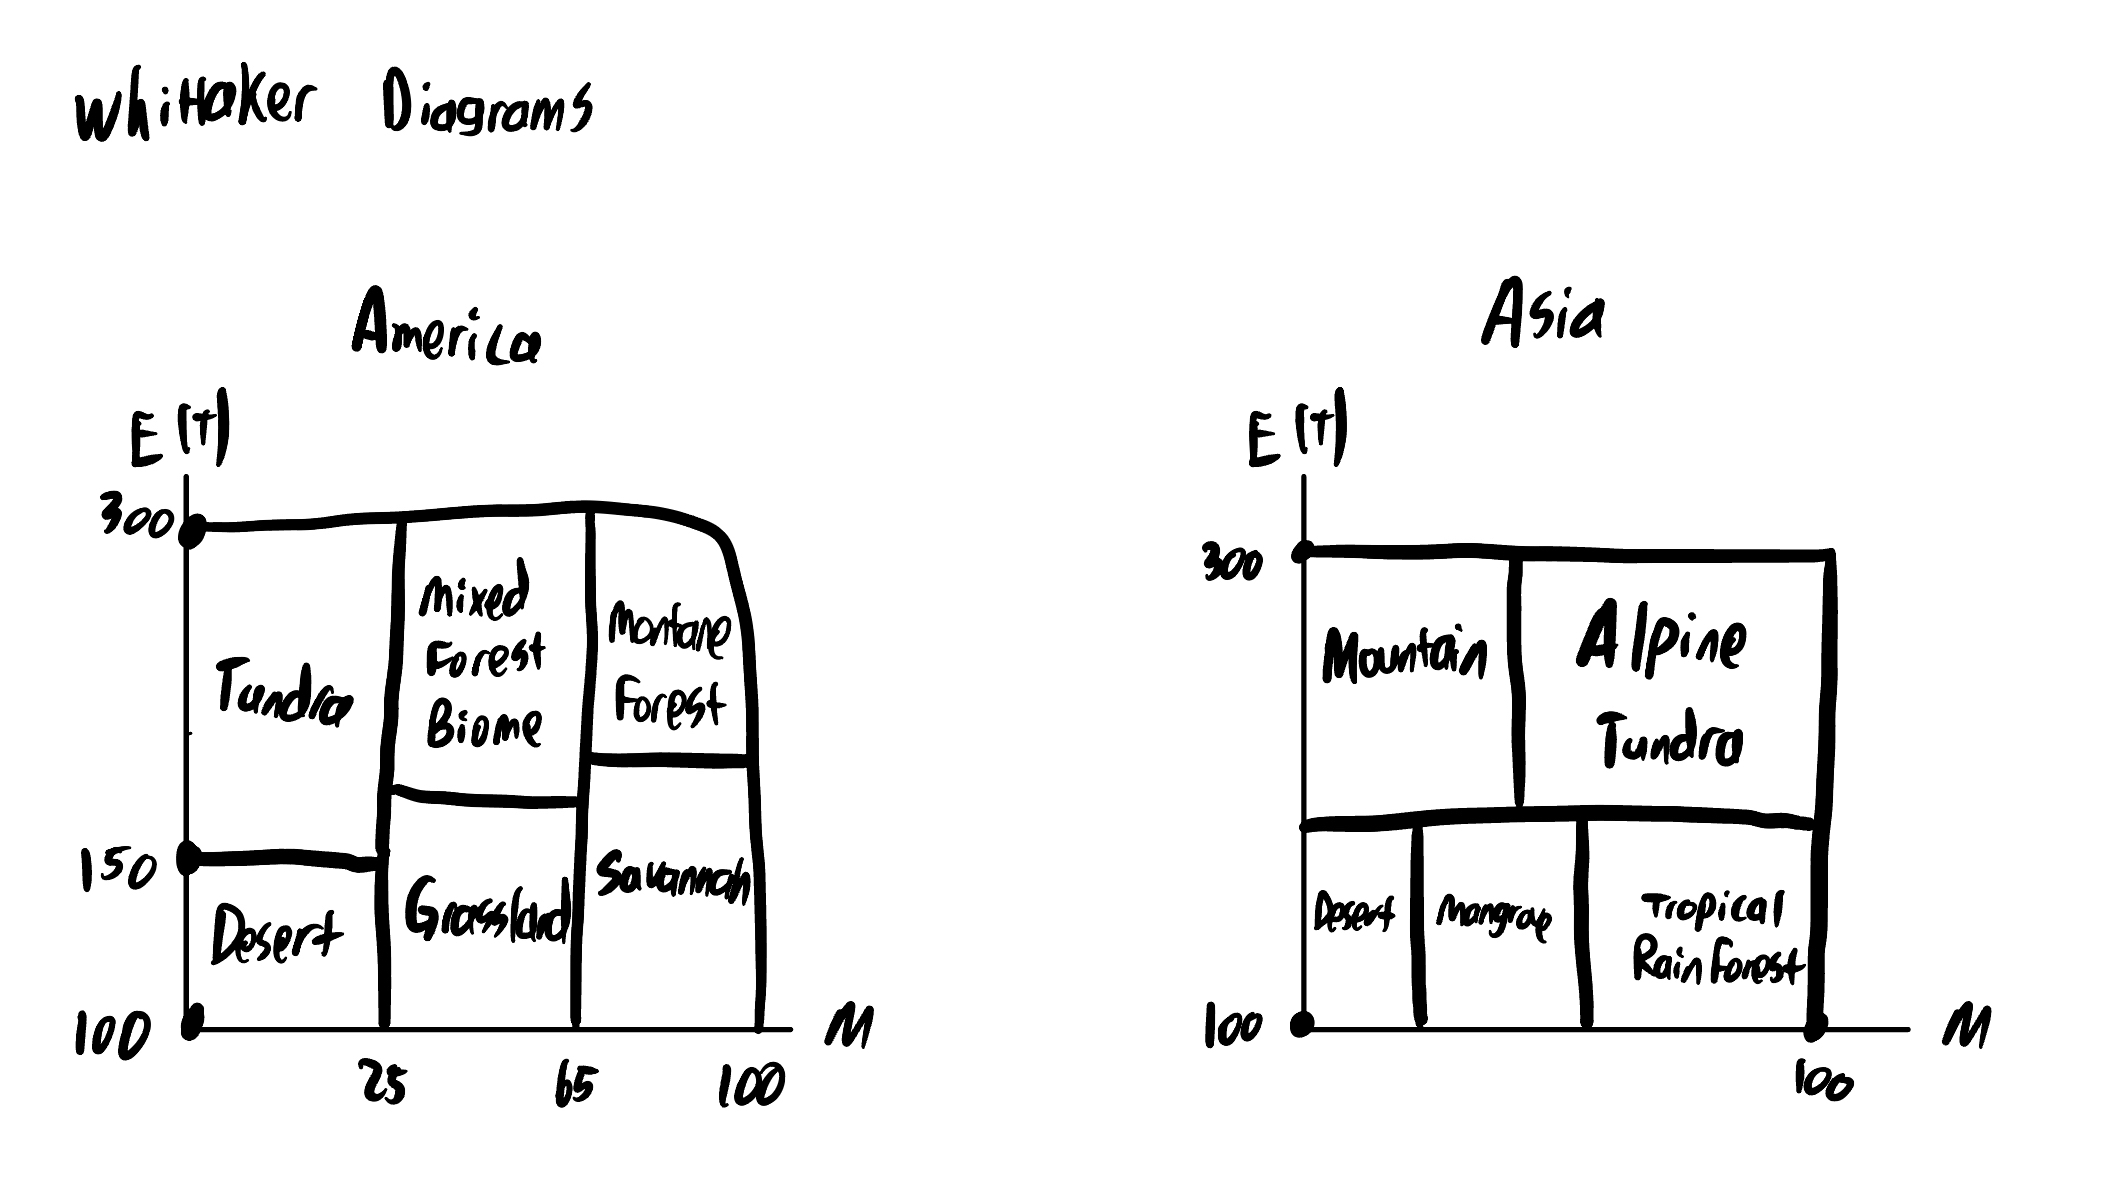 Whittaker Diagrams
America
E (T)
300
Tundra
Mixed
Forest
Biome
Montane
Forest
150
Desert
Grassland
Savannah
100
M
25
65
100
Asia
E (T)
300
Mountain
Alpine
Tundra
Desert
Mangrove
Tropical
Rain Forest
100
M
100